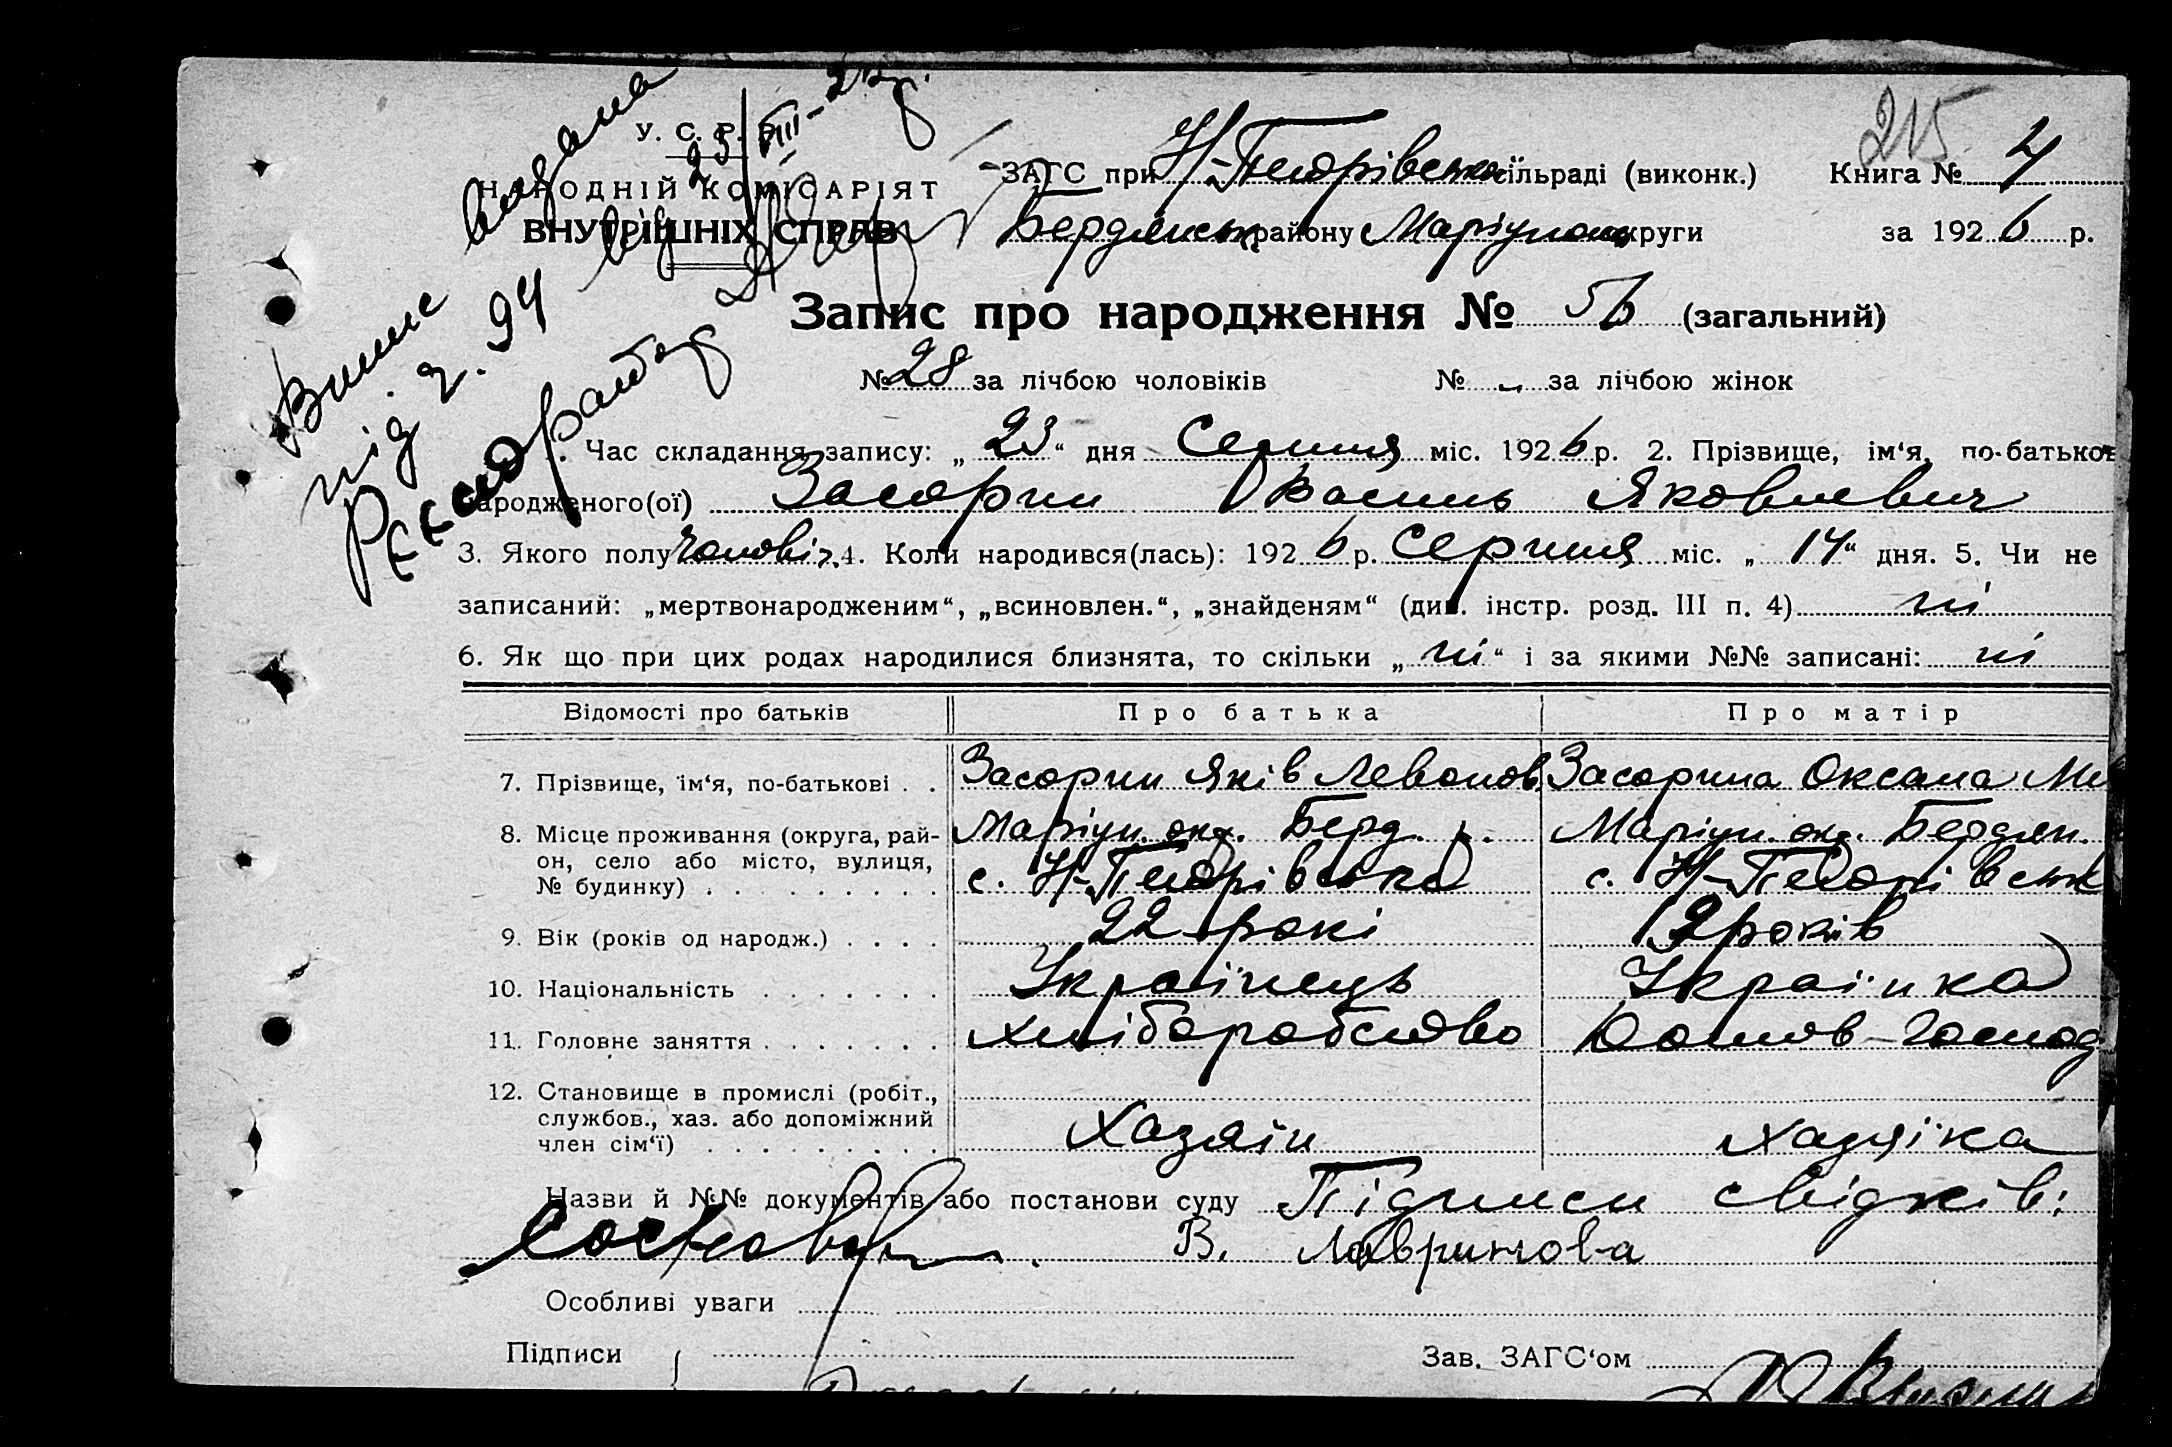 215
У. С. Р. Р.
НАРОДНІЙ КОМІСАРІЯТ
ВНУТРІШНІХ СПРАВ
Випис видана
під ч. 94 від 23/VIII-26 р.
ЗАГС при Н-Петрівській сільраді (виконк.) Книга № 4
Бердянськ району Маріупол округи за 1926 р.
Запис про народження № 56 (загальний)
№ 28 за лічбою чоловіків № „ за лічбою жінок
1. Час складання запису: „23“ дня Серпня міс. 1926 р. 2. Прізвище, ім‘я, по-батькові
народженого(ої) Засорин Василь Яковлевич
3. Якого полу чоловіч. 4. Коли народився(лась): 1926 р. Серпня міс. „14“ дня. 5. Чи не
записаний: „мертвонародженим“, „всиновлен.“, „знайденям“ (див. інстр. розд. III п. 4) ні
6. Як що при цих родах народилися близнята, то скільки „ні“ і за якими №№ записані: ні
Відомості про батьків Про батька Про матір
7. Прізвище, ім‘я, по-батькові . . Засорин Яків Левонов. Засорина Оксана Ми
8. Місце проживання (округа, рай- Маріуп. окр. Берд. р. Маріуп. окр. Бердян.
он, село або місто, вулиця, с. Н-Петрівська с. Н-Петрівськ
№ будинку) . . . . . . . . .
9. Вік (років од народж.) . . . . 22 рокі 19 років
10. Національність . . . . . . . Українець Українка
11. Головне заняття . . . . . . . хліборобство Домов-господ
12. Становище в промислі (робіт.,
службов., хаз. або допоміжний
член сім‘ї) . . . . . . . . . Хазяїн хазяїка
Назви й №№ документів або постанови суду Підписи свідків:
В. Лавринова
Особливі уваги
Підписи Зав. ЗАГС‘ом